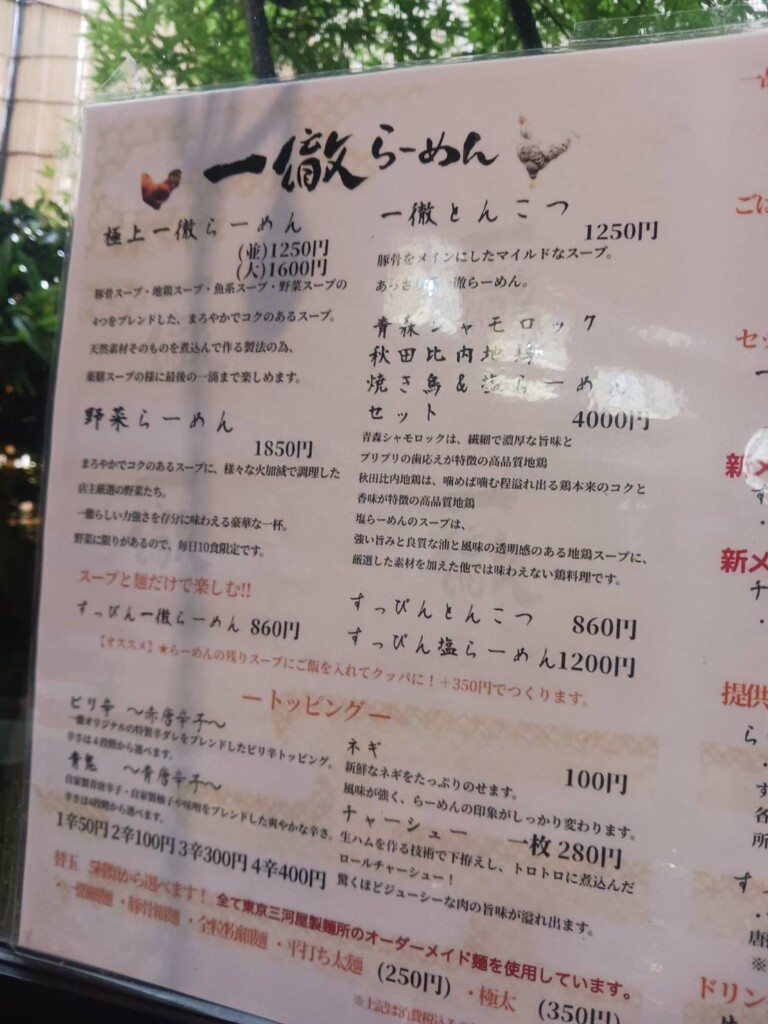 一徹らーめん
極上一徹らーめん
(並)1250円
(大)1600円
豚骨スープ・地鶏スープ・魚系スープ・野菜スープの
4つをブレンドした、まろやかでコクのあるスープ。
天然素材そのものを煮込んで作る製法の為、
薬膳スープの様に最後の一滴まで楽しめます。
野菜らーめん
1850円
まろやかでコクのあるスープに、様々な火加減で調理した
店主厳選の野菜たち。
一徹らしい力強さを存分に味わえる豪華な一杯。
野菜に限りがあるので、毎日10食限定です。
スープと麺だけで楽しむ!!
すっぴん一徹らーめん 860円
一徹とんこつ
1250円
豚骨をメインにしたマイルドなスープ。
あっさり 一徹らーめん。
青森シャモロック
秋田比内地鶏
焼き鳥&塩らーめん
セット 4000円
青森シャモロックは、繊細で濃厚な旨味と
プリプリの歯応えが特徴の高品質地鶏
秋田比内地鶏は、噛めば噛む程溢れ出る鶏本来のコクと
香味が特徴の高品質地鶏
塩らーめんのスープは、
強い旨みと良質な油と風味の透明感のある地鶏スープに、
厳選した素材を加えた他では味わえない鶏料理です。
すっぴんとんこつ 860円
すっぴん塩らーめん1200円
【オススメ】★らーめんの残りスープにご飯を入れてクッパに!+350円でつくります。
ートッピングー
ピリ辛 〜赤唐辛子〜
一徹オリジナルの特製辛ダレをブレンドしたピリ辛トッピング。
辛さは4段階から選べます。
青鬼 〜青唐辛子〜
自家製青唐辛子・自家製柚子や味噌をブレンドした爽やかな辛さ。
辛さは4段階から選べます。
1辛50円 2辛100円 3辛300円 4辛400円
ネギ 100円
新鮮なネギをたっぷりのせます。
風味が強く、らーめんの印象がしっかり変わります。
チャーシュー 一枚 280円
生ハムを作る技術で下拵えし、トロトロに煮込んだ
ロールチャーシュー!
驚くほどジューシーな肉の旨味が溢れ出ます。
替玉 5種類から選べます! 全て東京三河屋製麺所のオーダーメイド麺を使用しています。
・一徹細麺 ・豚骨細麺 ・全粒粉細麺 ・平打ち太麺 (250円) ・極太 (350円)
※上記は消費税込
ごは
セッ
新メ
す
新メ
チ
提供
ら
す
各
所
す
唐
※
ドリン